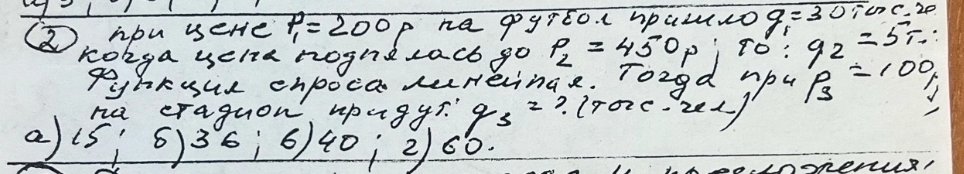 ② при цене P₁=200р на футбол пришло q₁=30тыс.че
когда цена поднялась до P₂=450р, то: q₂=5т.:
Функция спроса линейная. Тогда при P₃=100р,
на стадион придут: q₃=?(тыс.чел)
а)15; б)36; в)40; г)60.